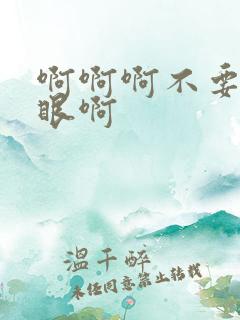 啊啊啊不要
眼啊
温千醉
未经同意禁止转载